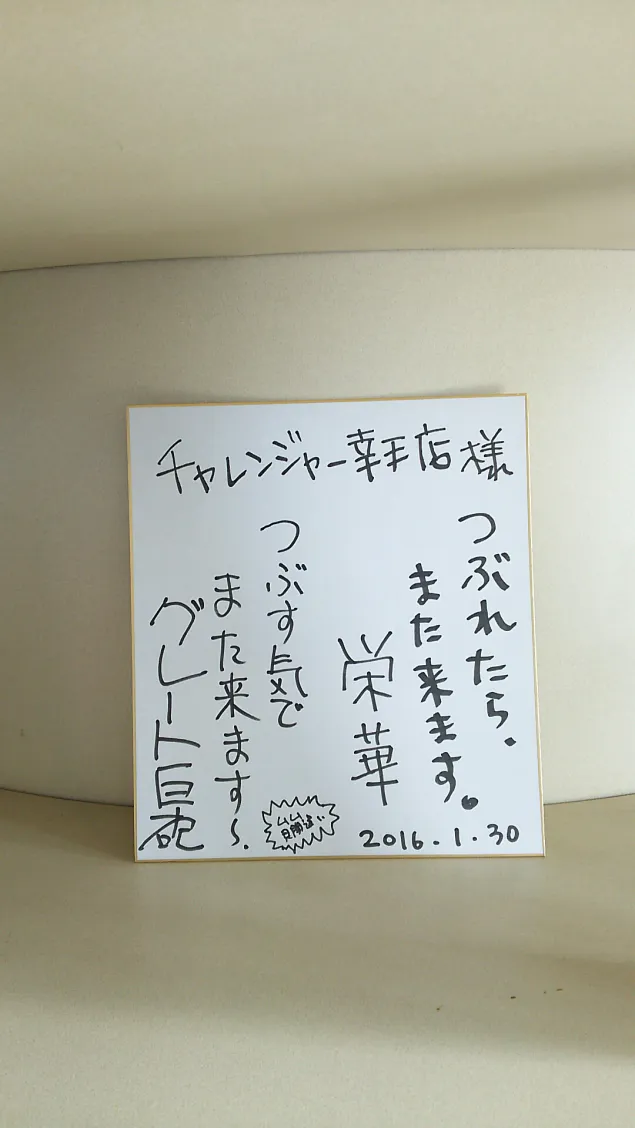 チャレンジャー幸手店様
つぶれたら、
また来ます。
栄華
2016.1.30
つぶす気で
また来ます〜.
グレート巨砲